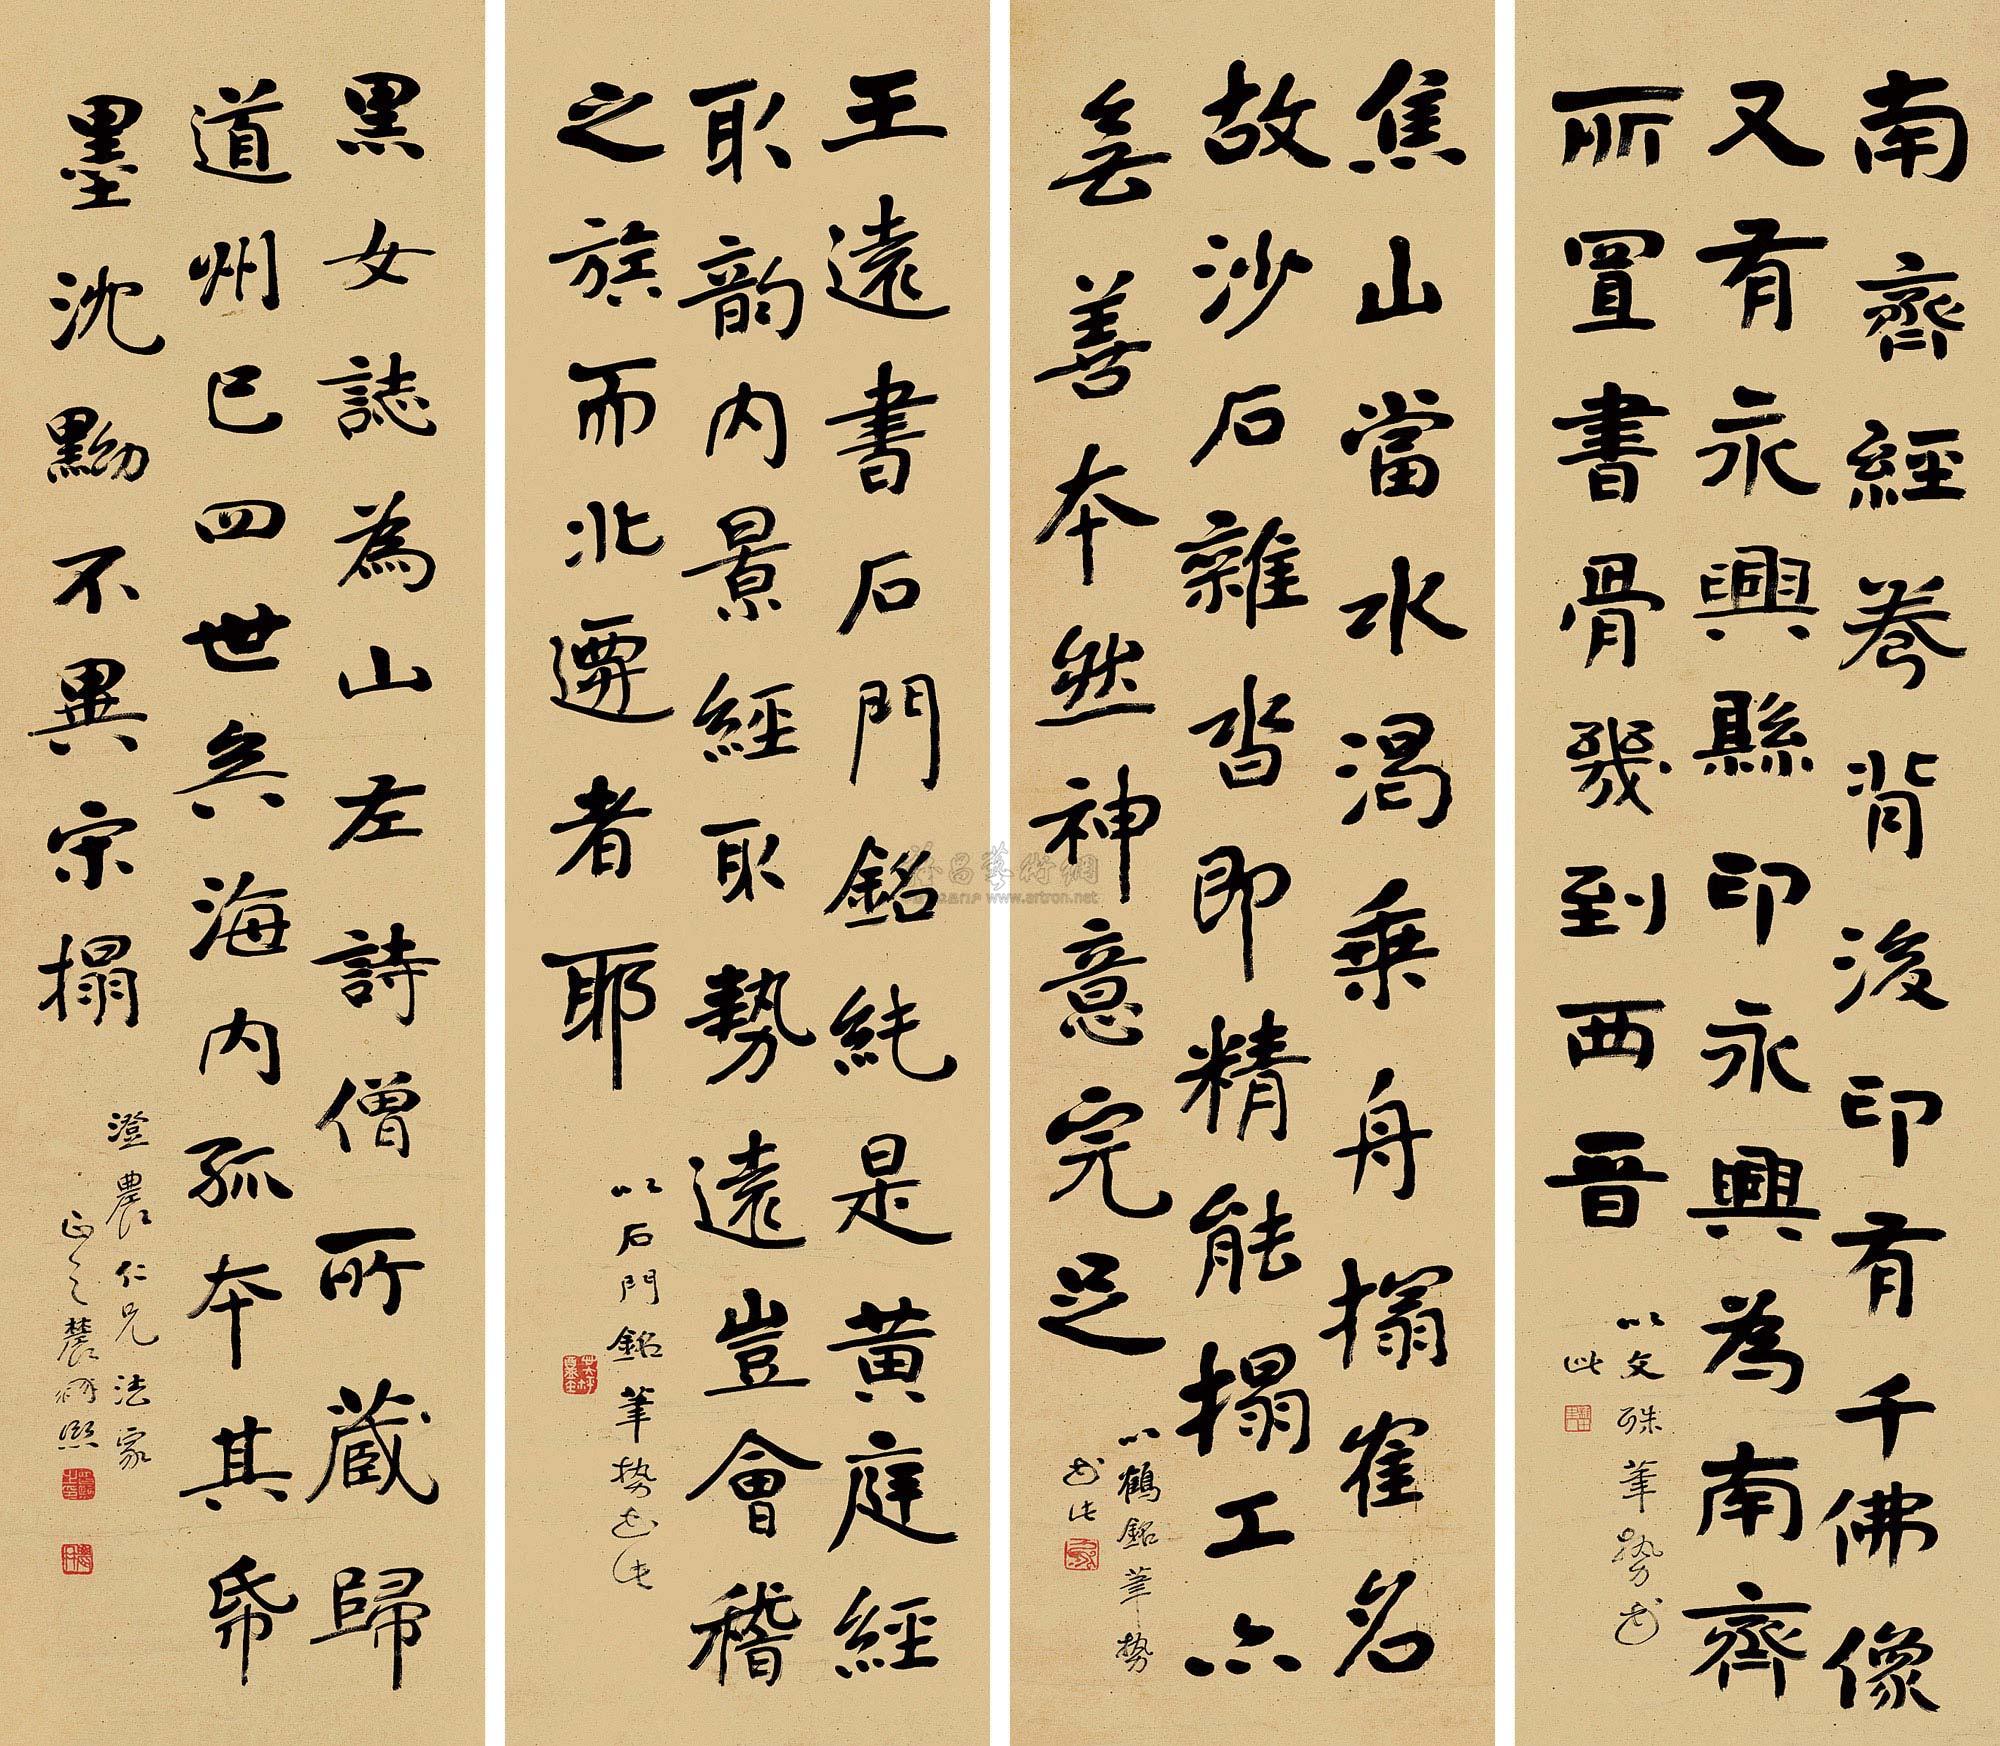 南齊經卷背後印有千佛像
又有永興縣印永興為南齊
所置書骨幾到西晉
以文殊筆勢書
此
焦山當水渴乘舟搨崔名
故沙石雜沓即精能搨工亦
無善本然神意完足
以鶴銘筆勢
書此
王遠書石門銘純是黃庭經
取韵內景經取勢遠豈會稽
之族而北遷者耶
以石門銘筆勢書此
黑女誌為山左詩僧所藏歸
道州已四世矣海內孤本其紙
墨沈黝不異宋搨
澄農仁兄法家
正之農髯熙
www.artron.net